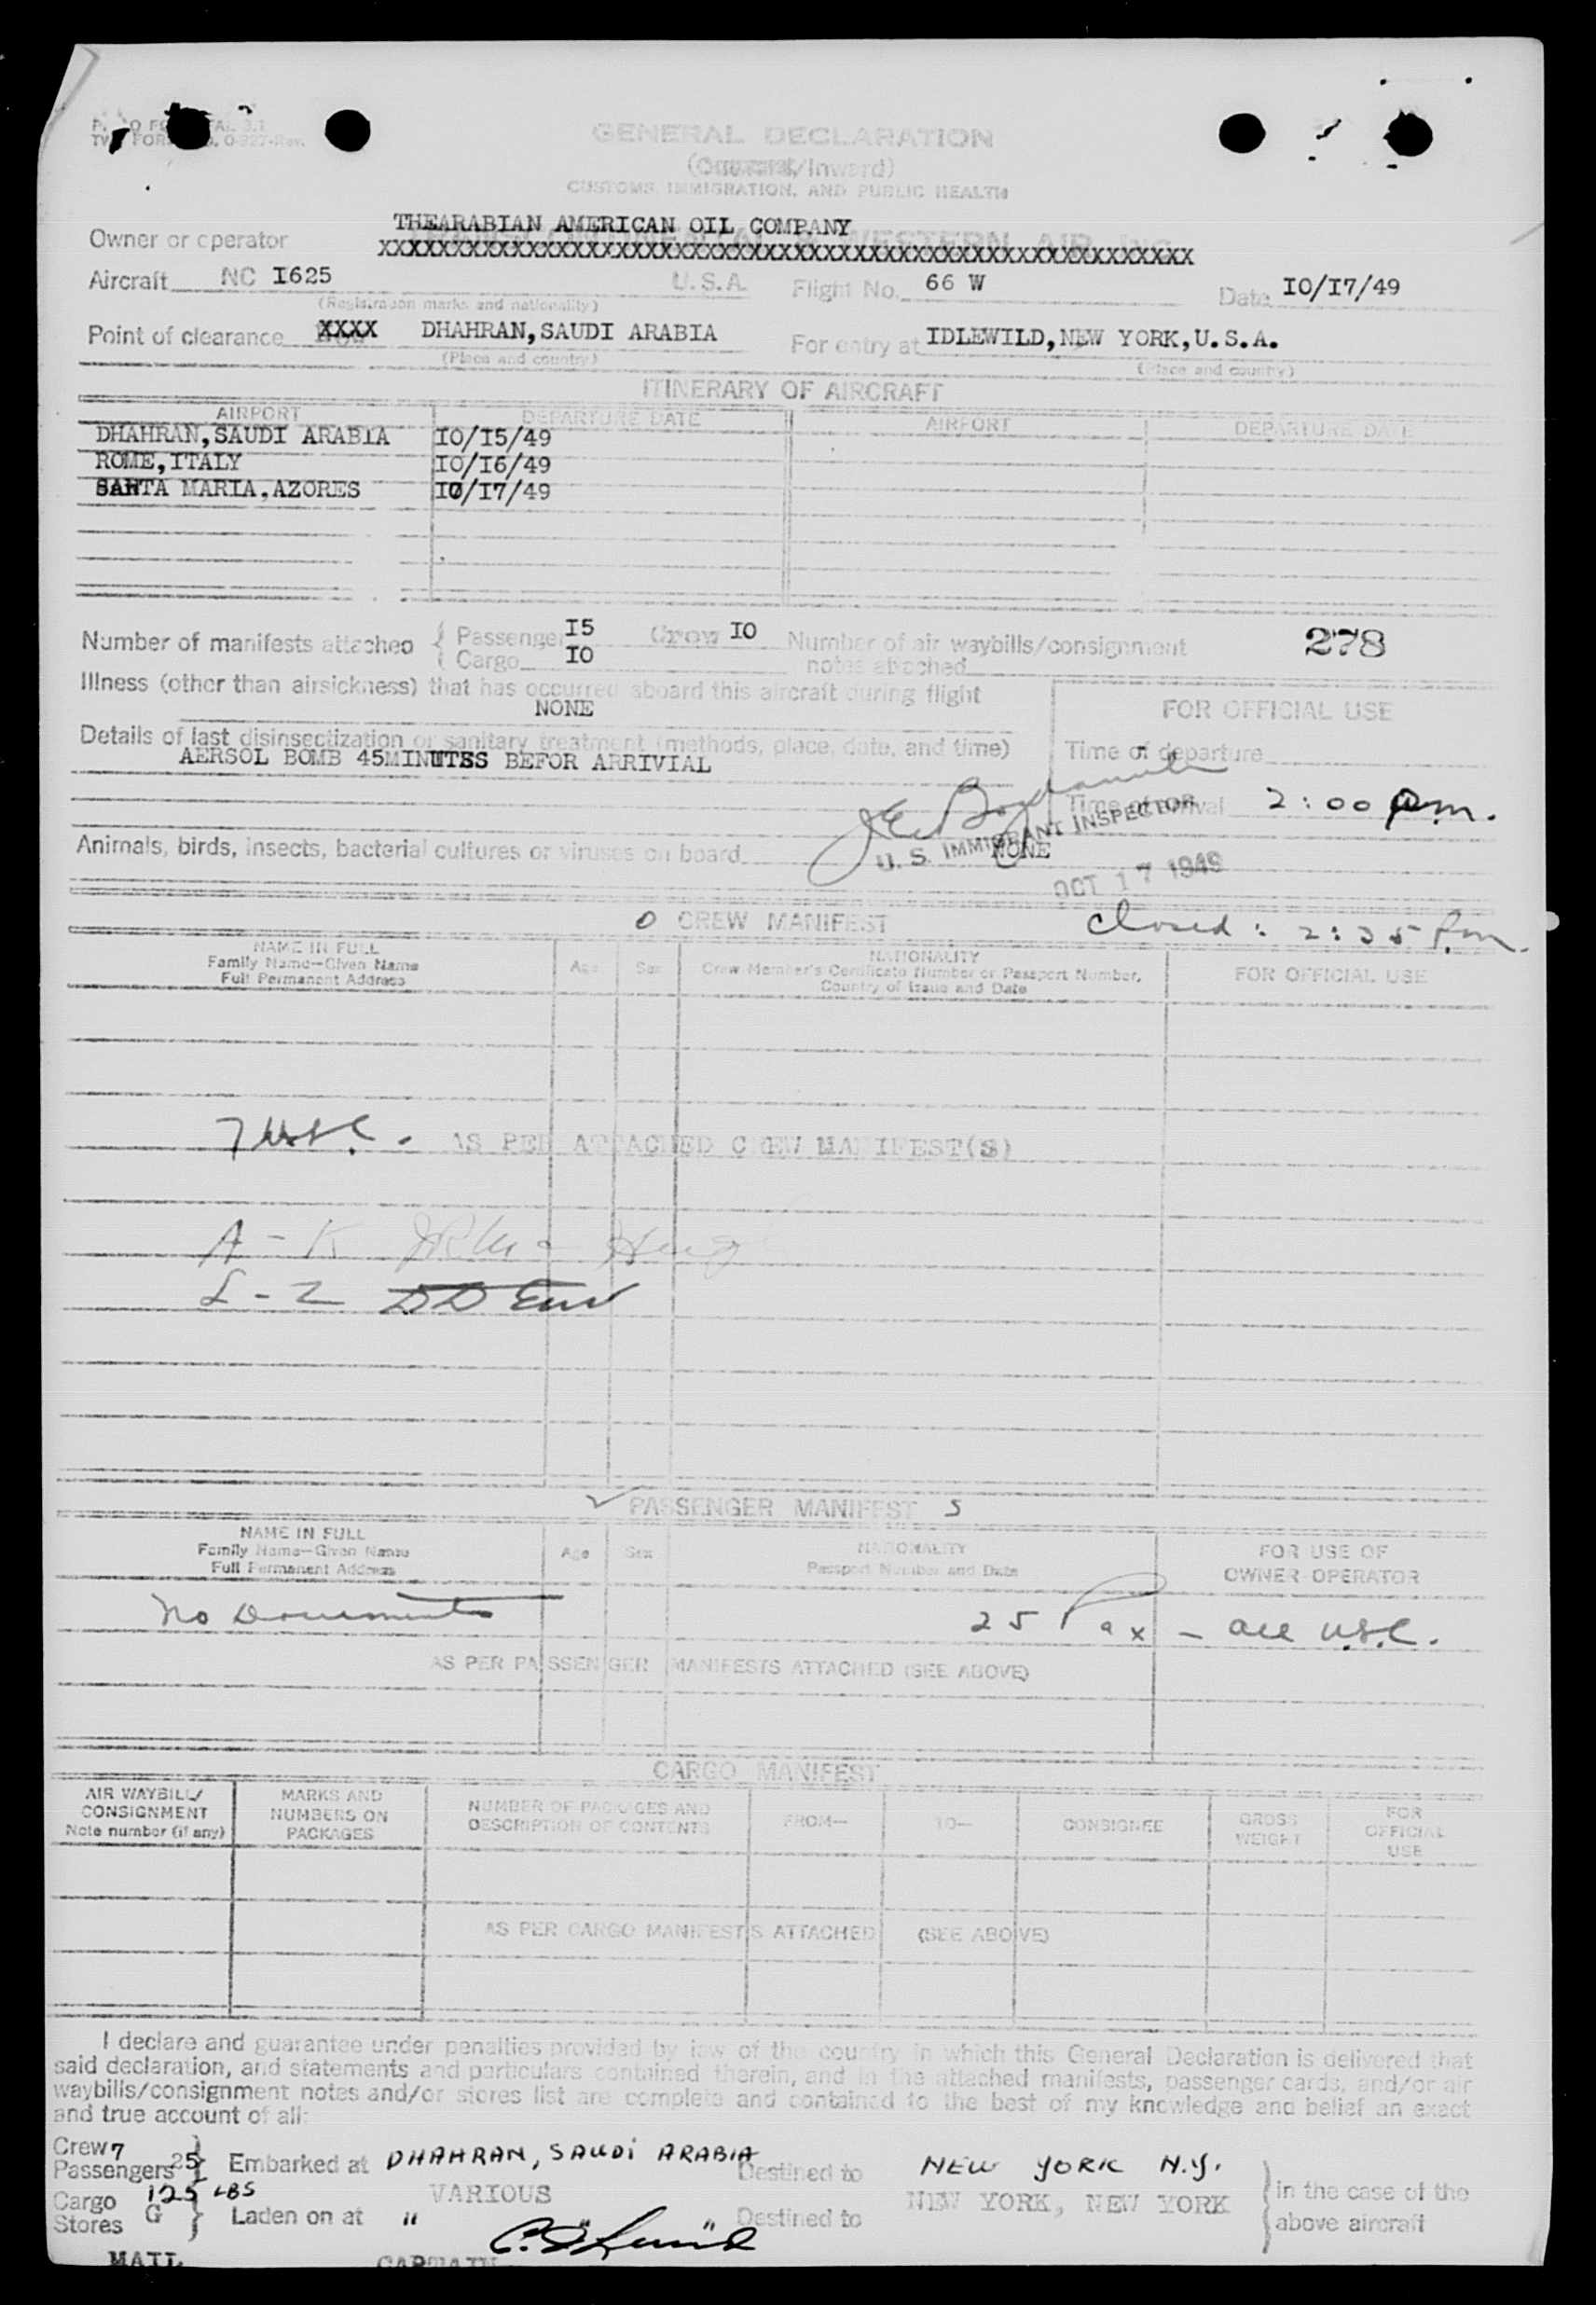 GENERAL DECLARATION
(Outward/Inward)
CUSTOMS, IMMIGRATION, AND PUBLIC HEALTH
THEARABIAN AMERICAN OIL COMPANY
Owner or operator XXXXXXXXXXXXXXXXXXXXXXXXXXXXXXXXXXXXXXXXXXXXXXXXXXXXXX
Aircraft NC I625 U.S.A. Flight No. 66 W Date IO/I7/49
(Registration marks and nationality)
Point of clearance XXXX DHAHRAN,SAUDI ARABIA For entry at IDLEWILD,NEW YORK,U.S.A.
(Place and country) (Place and country)
ITINERARY OF AIRCRAFT
AIRPORT DEPARTURE DATE AIRPORT DEPARTURE DATE
DHAHRAN,SAUDI ARABIA IO/I5/49
ROME,ITALY IO/I6/49
SANTA MARIA,AZORES IO/I7/49
Number of manifests attached { Passenger I5 Crew IO Number of air waybills/consignment 278
Cargo IO notes attached
Illness (other than airsickness) that has occurred aboard this aircraft during flight
NONE
FOR OFFICIAL USE
Details of last disinsectization or sanitary treatment (methods, place, date, and time)
AERSOL BOMB 45MINUTES BEFOR ARRIVIAL
Time of departure
Time of arrival 2:00 p.m.
U. S. IMMIGRANT INSPECTOR
Animals, birds, insects, bacterial cultures or viruses on board NONE
OCT 17 1949
O CREW MANIFEST closed: 2:35 p.m.
NAME IN FULL
Family Name—Given Name
Full Permanent Address
Age Sex
NATIONALITY
Crew Member's Certificate Number or Passport Number,
Country of Issue and Date
FOR OFFICIAL USE
7 USC. AS PER ATTACHED CREW MANIFEST(S)
A - K
L - Z
PASSENGER MANIFEST S
NAME IN FULL
Family Name—Given Name
Full Permanent Address
Age Sex
NATIONALITY
Passport Number and Date
FOR USE OF
OWNER-OPERATOR
No Documents 25 Pax - all U.S.C.
AS PER PASSENGER MANIFESTS ATTACHED (SEE ABOVE)
CARGO MANIFEST
AIR WAYBILL/
CONSIGNMENT
Note number (if any)
MARKS AND
NUMBERS ON
PACKAGES
NUMBER OF PACKAGES AND
DESCRIPTION OF CONTENTS
FROM— TO— CONSIGNEE
GROSS
WEIGHT
FOR
OFFICIAL
USE
AS PER CARGO MANIFESTS ATTACHED (SEE ABOVE)
I declare and guarantee under penalties provided by law of the country in which this General Declaration is delivered that
said declaration, and statements and particulars contained therein, and in the attached manifests, passenger cards, and/or air
waybills/consignment notes and/or stores list are complete and contained to the best of my knowledge and belief an exact
and true account of all:
Crew 7
Passengers 25 } Embarked at DHAHRAN, SAUDI ARABIA Destined to NEW YORK N.Y.
Cargo 125 LBS VARIOUS NEW YORK, NEW YORK
Stores G } Laden on at " " " Destined to
in the case of the
above aircraft
MAIL CAPTAIN